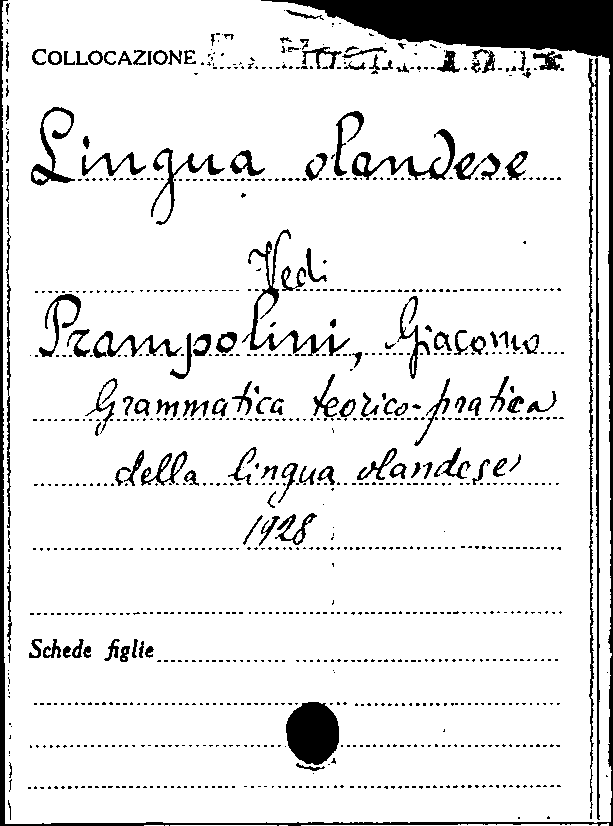 COLLOCAZIONE
Lingua olandese
Vedi
Prampolini, Giacomo
Grammatica teorico-pratica
della lingua olandese
1928
Schede figlie